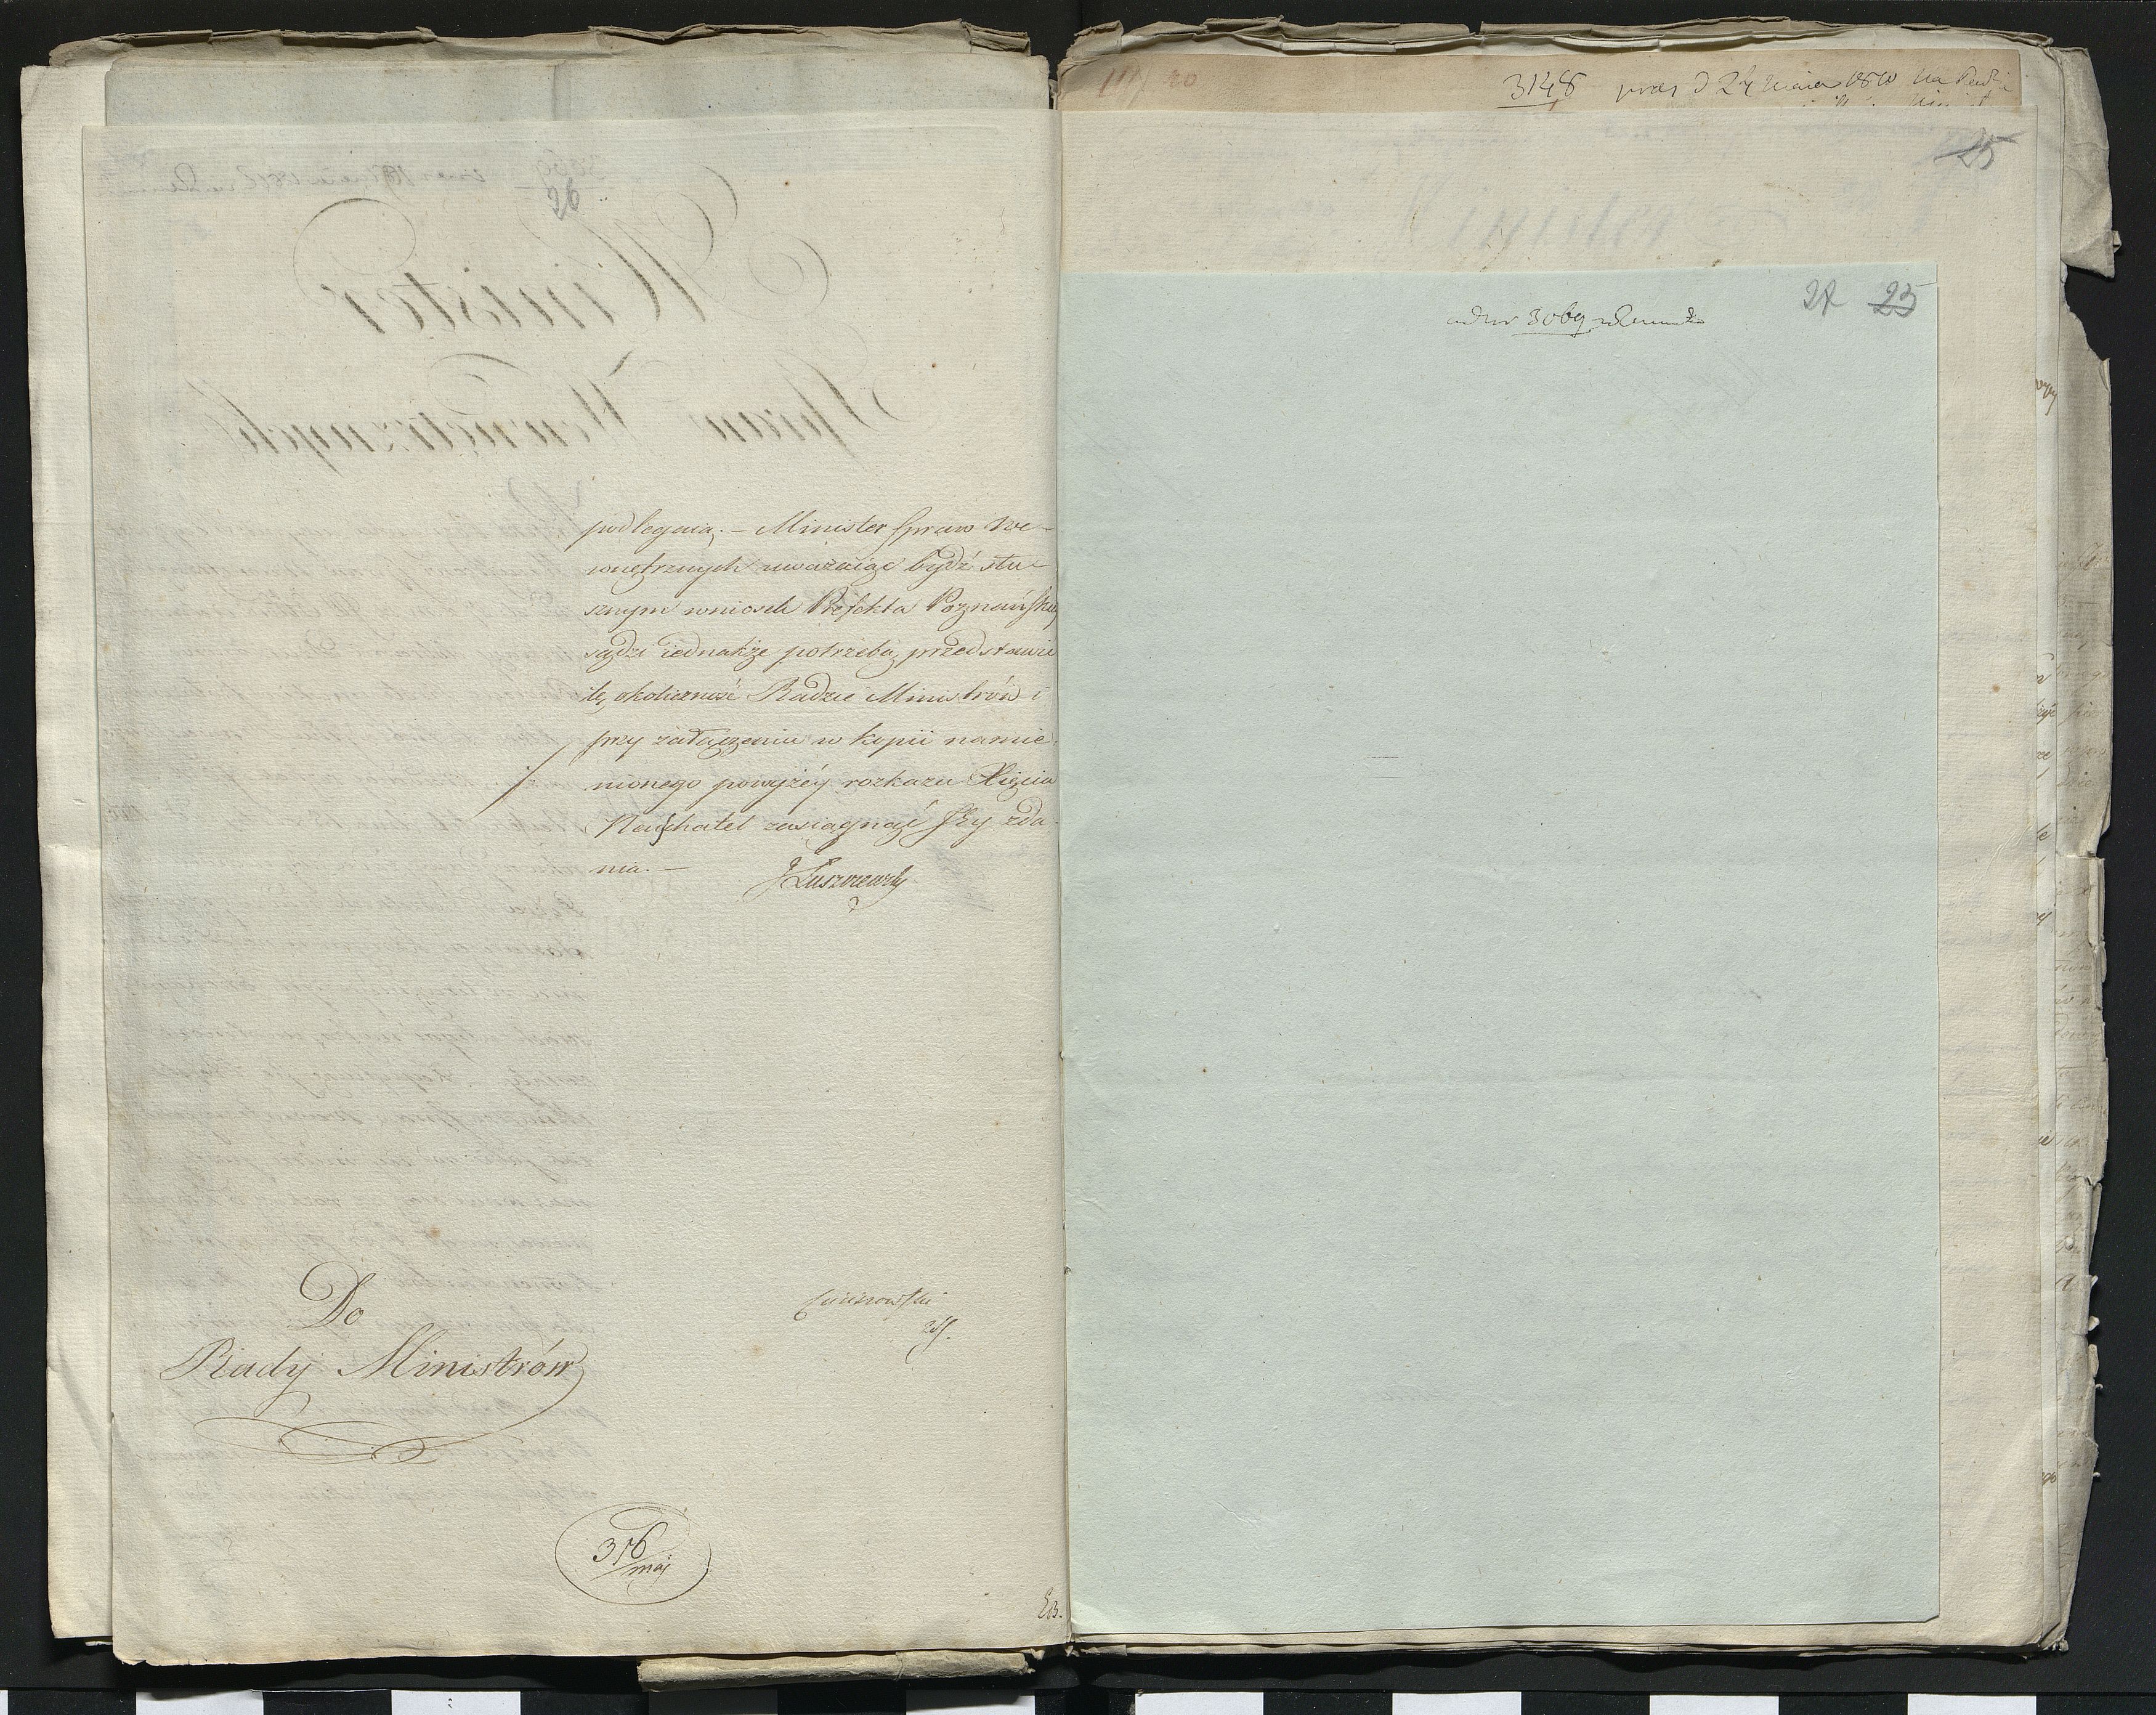 26
podlegaią. – Minister Spraw We-
wnętrznych uważaiąc bydź słu-
sznym wniosek Prefekta Poznańsk
sądzi iednakże potrzebą, przedstawić
tę okoliczność Radzie Ministrów i
przy załączeniu w kopii namie-
nionego powyżéy rozkazu Xięcia
Naufchatel zasiągnąć Jéy zda-
nia. –
J Łuszczewski
Do
Rady Ministrów
316/maj
3148 praes d 24 maia 1810 na
25
27 25
ad nr 3069